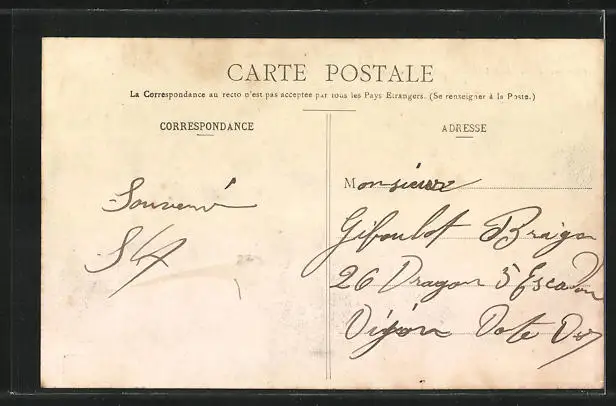 CARTE POSTALE
La Correspondance au recto n'est pas acceptée par tous les Pays Etrangers. (Se renseigner à la Poste.)
CORRESPONDANCE
ADRESSE
Souvenir
Monsieur
Giboulot
26 Dragon 5 Escadron
Dijon Cote Dor